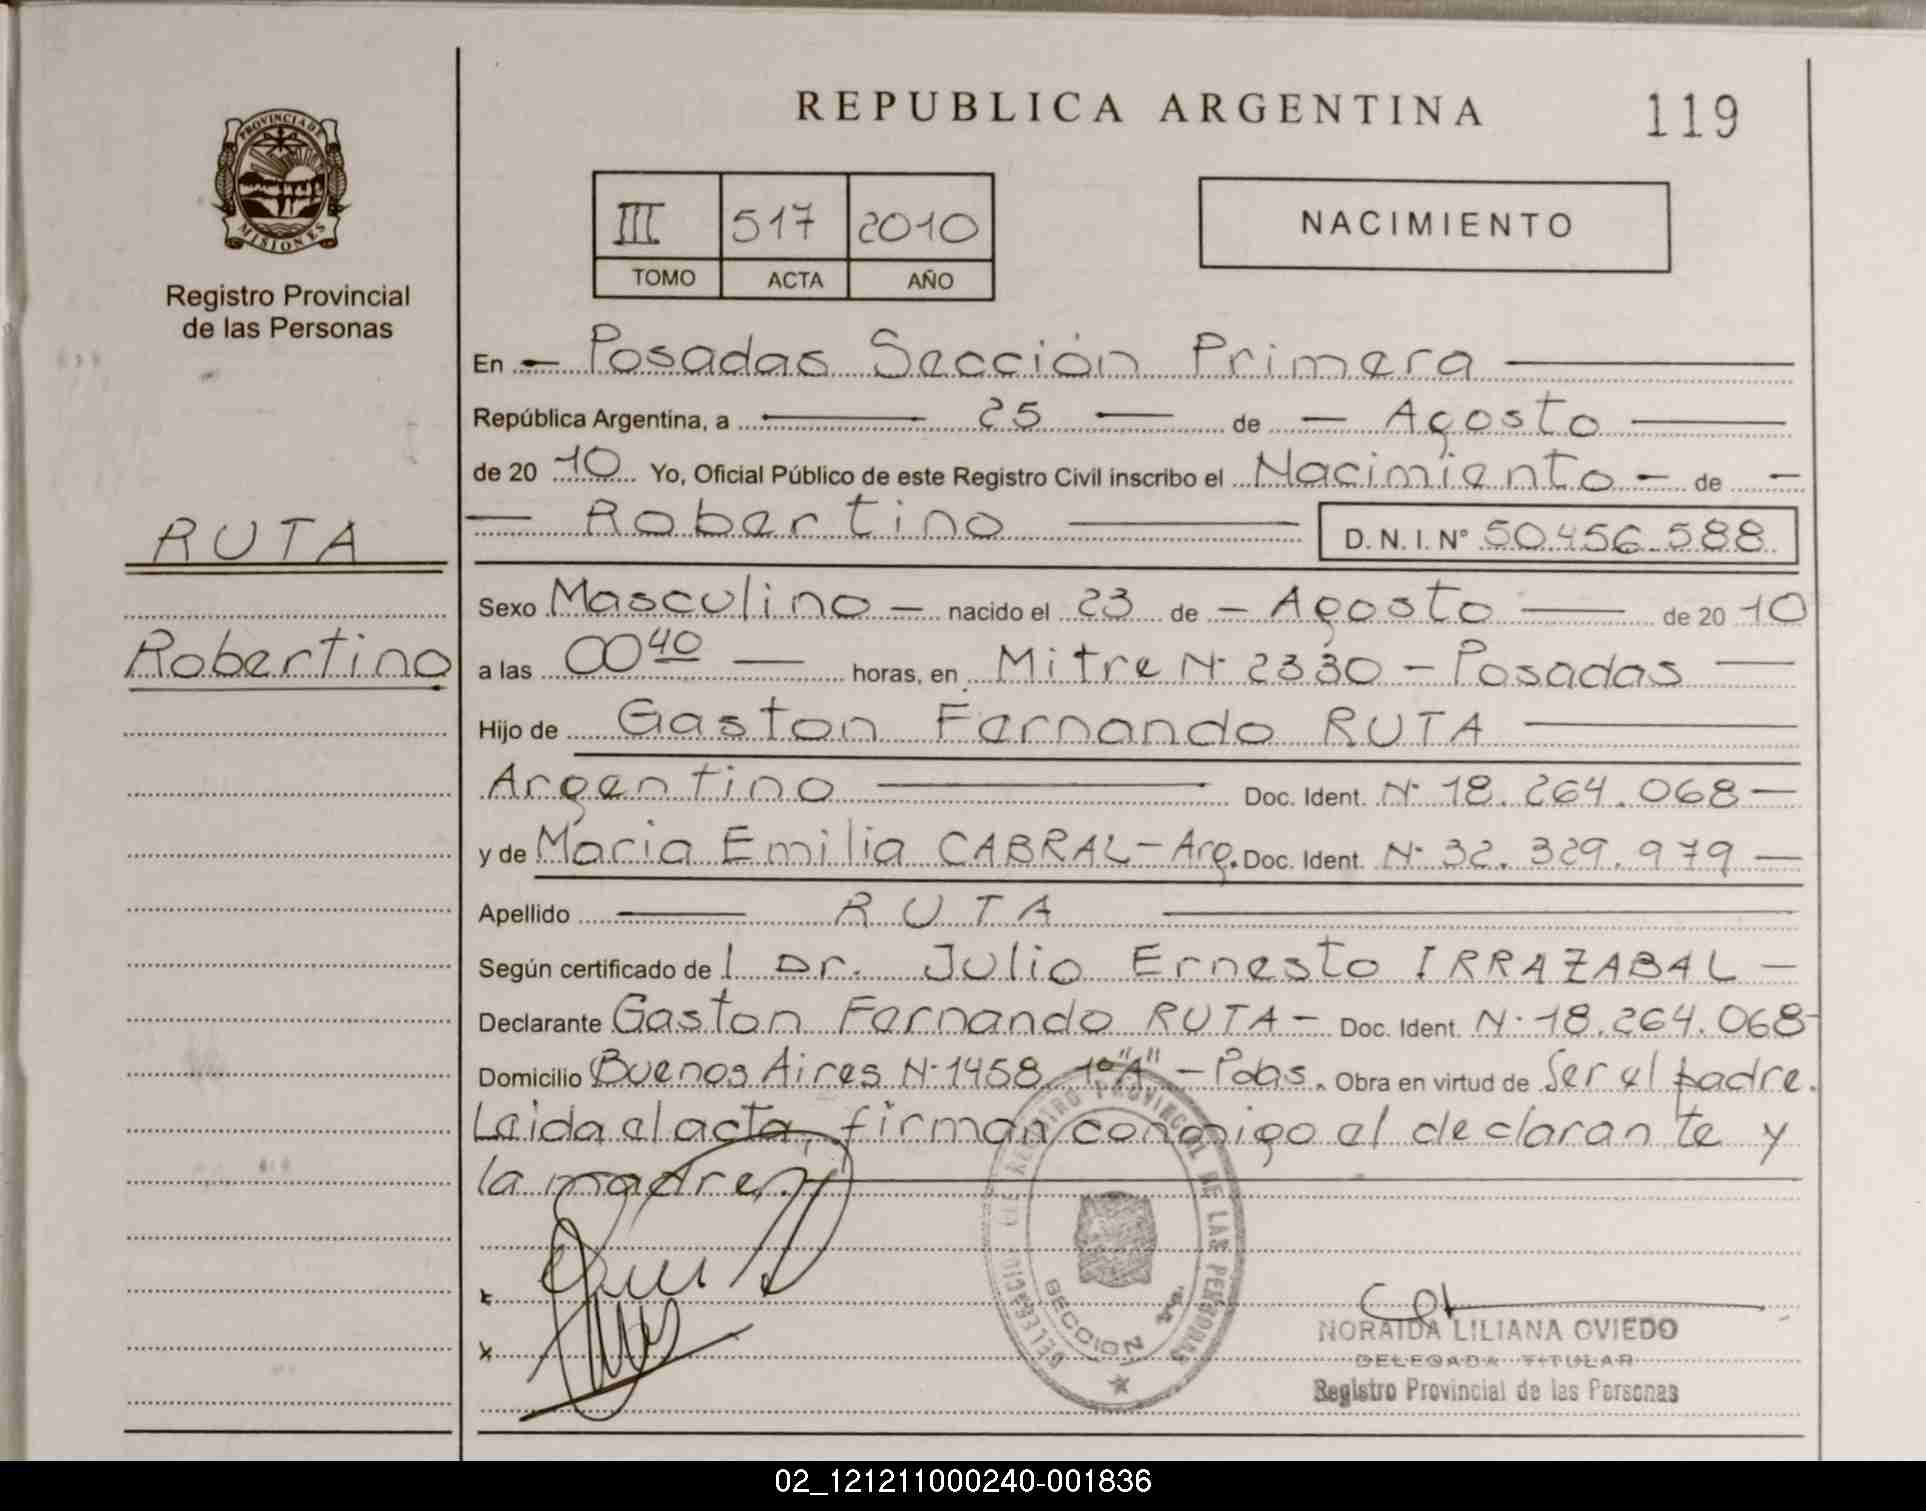 REPUBLICA ARGENTINA
119
PROVINCIA DE
MISIONES
Registro Provincial
de las Personas
III 517 2010
TOMO ACTA AÑO
NACIMIENTO
En - Posadas Sección Primera
República Argentina, a 25 de - Agosto
de 20 10 Yo, Oficial Público de este Registro Civil inscribo el Nacimiento - de -
Robertino
D. N. I. N° 50.456.588
RUTA
Robertino
Sexo Masculino - nacido el 23 de - Agosto de 20 10
a las 00 40 horas, en Mitre N° 2330 - Posadas
Hijo de Gaston Fernando RUTA
Argentino Doc. Ident. N° 18.264.068 -
y de Maria Emilia CABRAL - Arg. Doc. Ident. N° 32.329.979 -
Apellido RUTA
Según certificado del Dr. Julio Ernesto IRRAZABAL -
Declarante Gaston Fernando RUTA - Doc. Ident. N° 18.264.068 -
Domicilio Buenos Aires N° 1458 1° "A" - Pdas. Obra en virtud de Ser el padre.
Leida el acta, firman conmigo el declarante y
la madre.
REGISTRO PROVINCIAL DE LAS PERSONAS
SECCION
NORAIDA LILIANA OVIEDO
DELEGADA TITULAR
Registro Provincial de las Personas
02_121211000240-001836